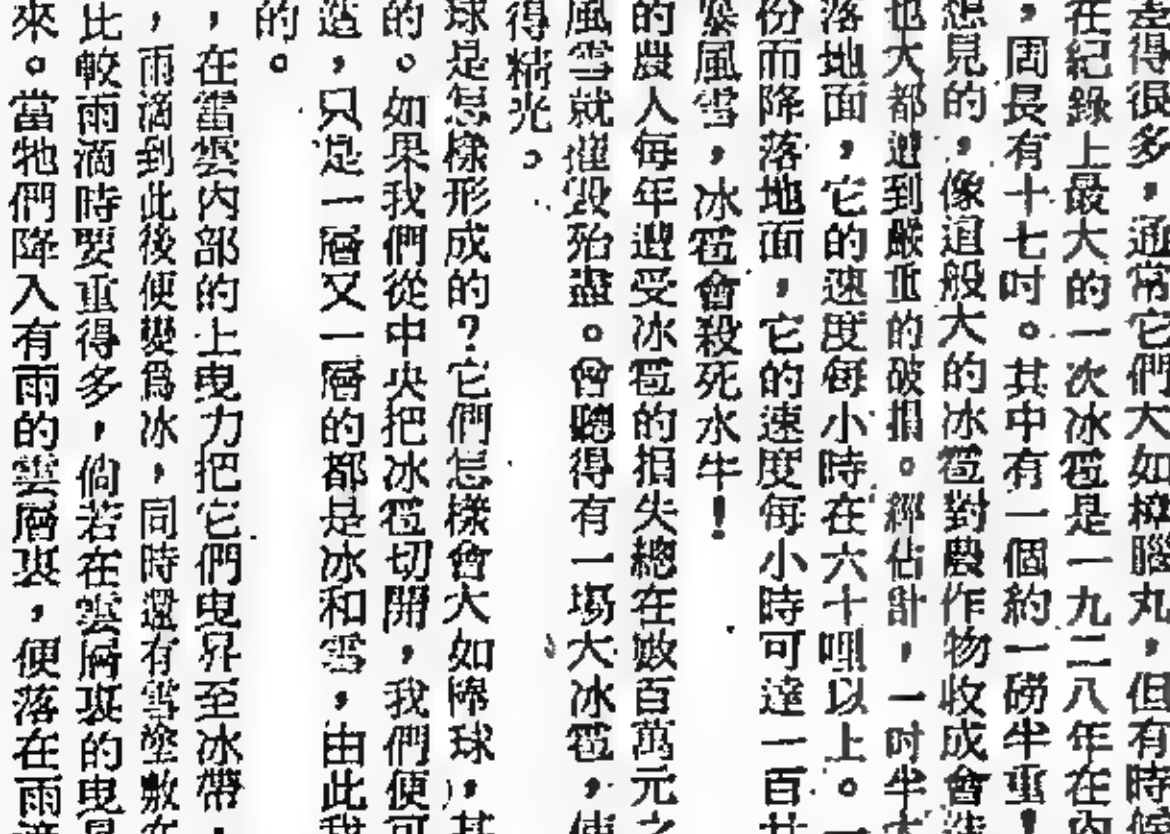 差得很多，通常它們大如樟腦丸，但有時候
在紀錄上最大的一次冰雹是一九二八年在內
，周長有十七吋。其中有一個約一磅半重！
想見的，像這般大的冰雹對農作物收成會造
也大都遭到嚴重的破損。經估計，一吋半大
落地面，它的速度每小時在六十哩以上。一
份而降落地面，它的速度每小時可達一百廿
暴風雪，冰雹會殺死水牛！
的農人每年遭受冰雹的損失總在數百萬元之
風雪就摧毀殆盡。曾聽得有一場大冰雹，使
得精光。
球是怎樣形成的？它們怎樣會大如棒球，其
的。如果我們從中央把冰雹切開，我們便可
造，只是一層又一層的都是冰和雪，由此我
的。
，在雷雲內部的上曳力把它們曳昇至冰帶，
，雨滴到此後便變爲冰，同時還有雪塗敷在
比較雨滴時要重得多，倘若在雲層裏的曳
來。當牠們降入有雨的雲層裏，便落在雨滴